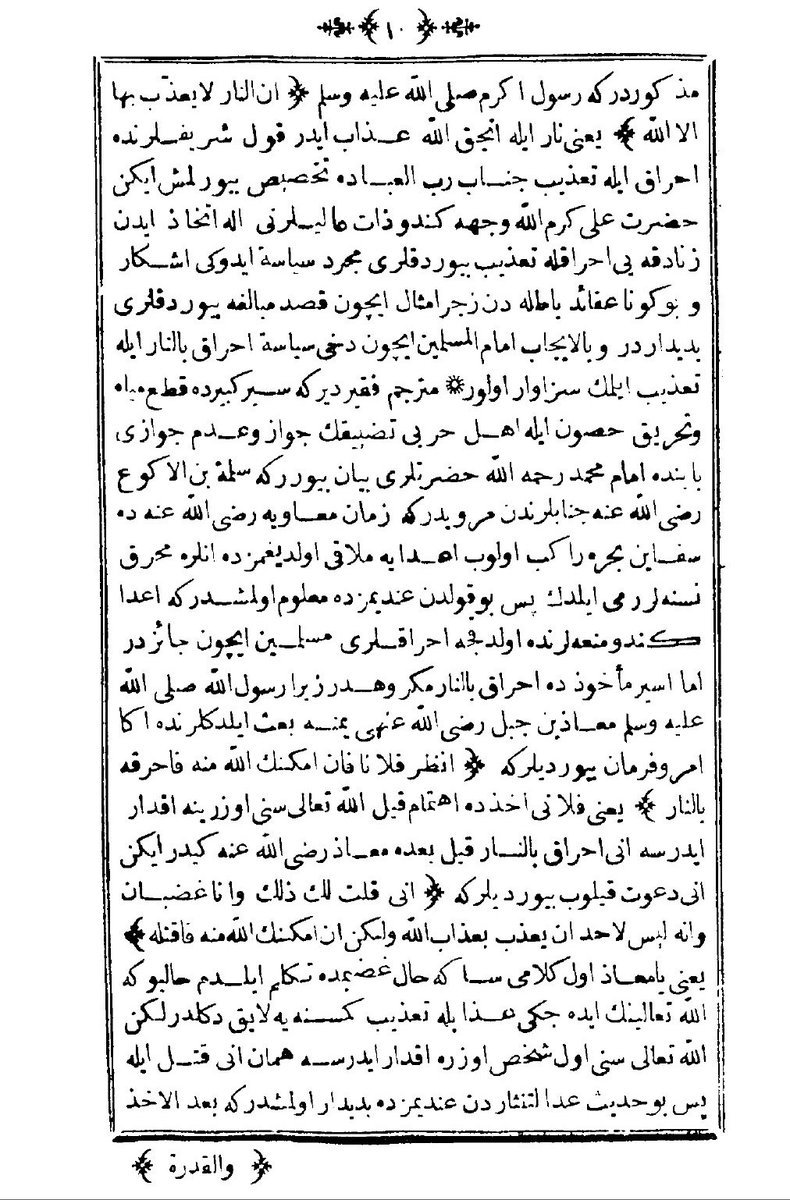 ١٠
مذكوردركه رسول اكرم صلى الله عليه وسلم ﴿ ان النار لا يعذب بها
الا الله ﴾ يعنى نار ايله انجق الله عذاب ايدر قول شريفلرنده
احراق ايله تعذيب جناب رب العباده تخصيص بيورلمش ايكن
حضرت على كرم الله وجهه كندو ذات عاليلرنى اله اتخاذ ايدن
زنادقه يى احراقله تعذيب بيوردقلرى مجرد سياسة ايدوكى اشكار
و بوكونا عقائد باطله دن زجر امثال ايچون قصد مبالغه بيوردقلرى
بديداردر و بالايجاب امام المسلمين ايچون دخى سياسة احراق بالنار ايله
تعذيب ايلمك سزاوار اولور ۞ مترجم فقير ديركه سير كبيرده قطع مياه
وتحريق حصون ايله اهل حربى تضييقك جواز وعدم جوازى
بابنده امام محمد رحمه الله حضرتلرى بيان بيورركه سلمة بن الاكوع
رضى الله عنه جنابلرندن مرويدركه زمان معاويه رضى الله عنه ده
سفاين بحره راكب اولوب اعدايه ملاقى اولديغمزده انلره محرق
نسنه لر رمى ايلدك پس بو قولدن عنديمزده معلوم اولمشدركه اعدا
كندو منعه لرنده اولدقجه احراقلرى مسلمين ايچون جائزدر
اما اسير مأخوذده احراق بالنار مكروهدر زيرا رسول الله صلى الله
عليه وسلم معاذ بن جبل رضى الله عنهى يمنه بعث ايلدكلرنده اكا
امر وفرمان بيورديلركه ﴿ انظر فلانا فان امكنك الله منه فاحرقه
بالنار ﴾ يعنى فلانى اخذده اهتمام قيل الله تعالى سنى اوزرينه اقدار
ايدرسه انى احراق بالنار قيل بعده معاذ رضى الله عنه كيدر ايكن
انى دعوت قيلوب بيورديلركه ﴿ انى قلت لك ذلك وانا غضبان
وانه ليس لاحد ان يعذب بعذاب الله ولكن ان امكنك الله منه فاقتله ﴾
يعنى يا معاذ اول كلامى سا كه حال غضبمده تكلم ايلدم حالبوكه
الله تعالينك ايده جكى عذابله تعذيب كمسنه يه لايق دكلدر لكن
الله تعالى سنى اول شخص اوزره اقدار ايدرسه همان انى قتل ايله
پس بو حديث عدالتنثاردن عنديمزده بديدار اولمشدركه بعد الاخذ
﴿ والقدرة ﴾